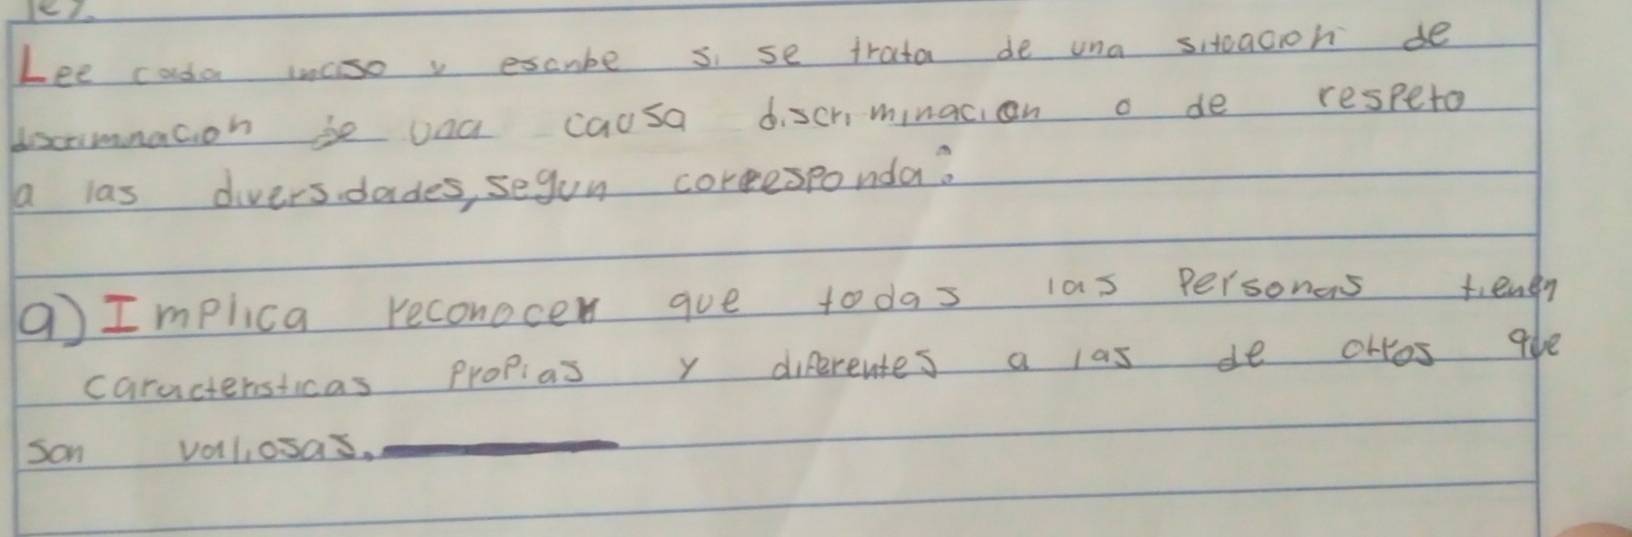 Lee cada inciso y escribe si se trata de una sitoacion de
discrimnacion de una causa discriminacion o de respeto
a las diversidades, segun correesponda:
a) Implica reconocer que todas las Personas tienen
caracteristicas Propias y diferentes a las de otros que
son valiosas.